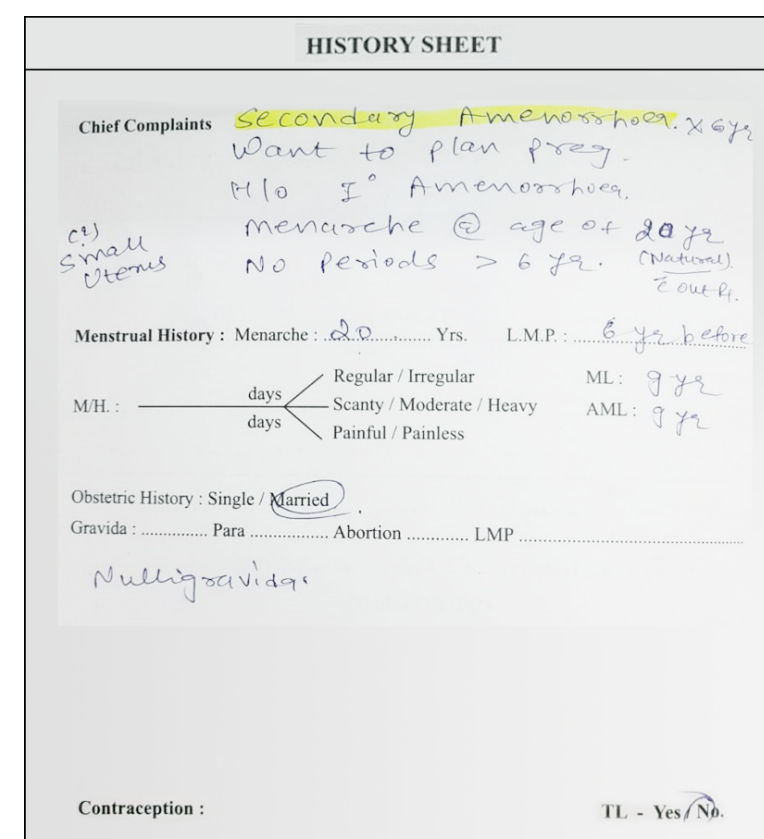 HISTORY SHEET
Chief Complaints Secondary Amenorrhoea. X 6yr
Want to plan preg.
H/o I° Amenorrhoea.
Menarche @ age of 20 yr
(Natural).
c̄ out Rx.
No Periods > 6 yr.
Small
Uterus
Menstrual History : Menarche : ..20........... Yrs. L.M.P. : ...... 6 yr before
M/H. : days Regular / Irregular ML : 9 yr
days Scanty / Moderate / Heavy AML : 9 yr
Painful / Painless
Obstetric History : Single / Married
Gravida : .............. Para ................. Abortion ............ LMP ..................................................
Nulligravida.
Contraception : TL - Yes / No.